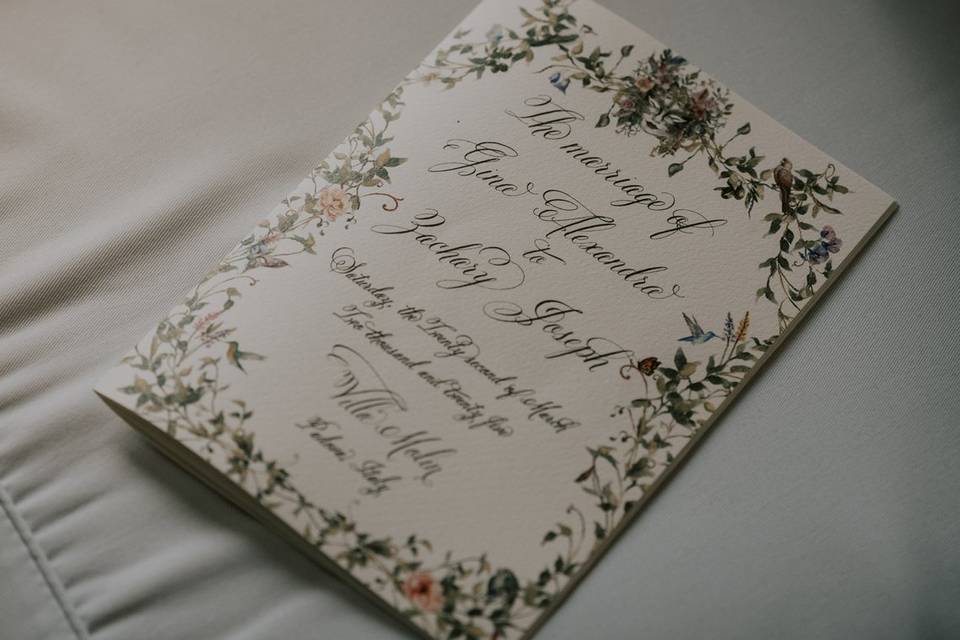 The marriage of
Gina Alexandria
to
Zachery Joseph
Saturday, the Twenty second of March
Two thousand and twenty five
Villa Molin
Padova, Italy